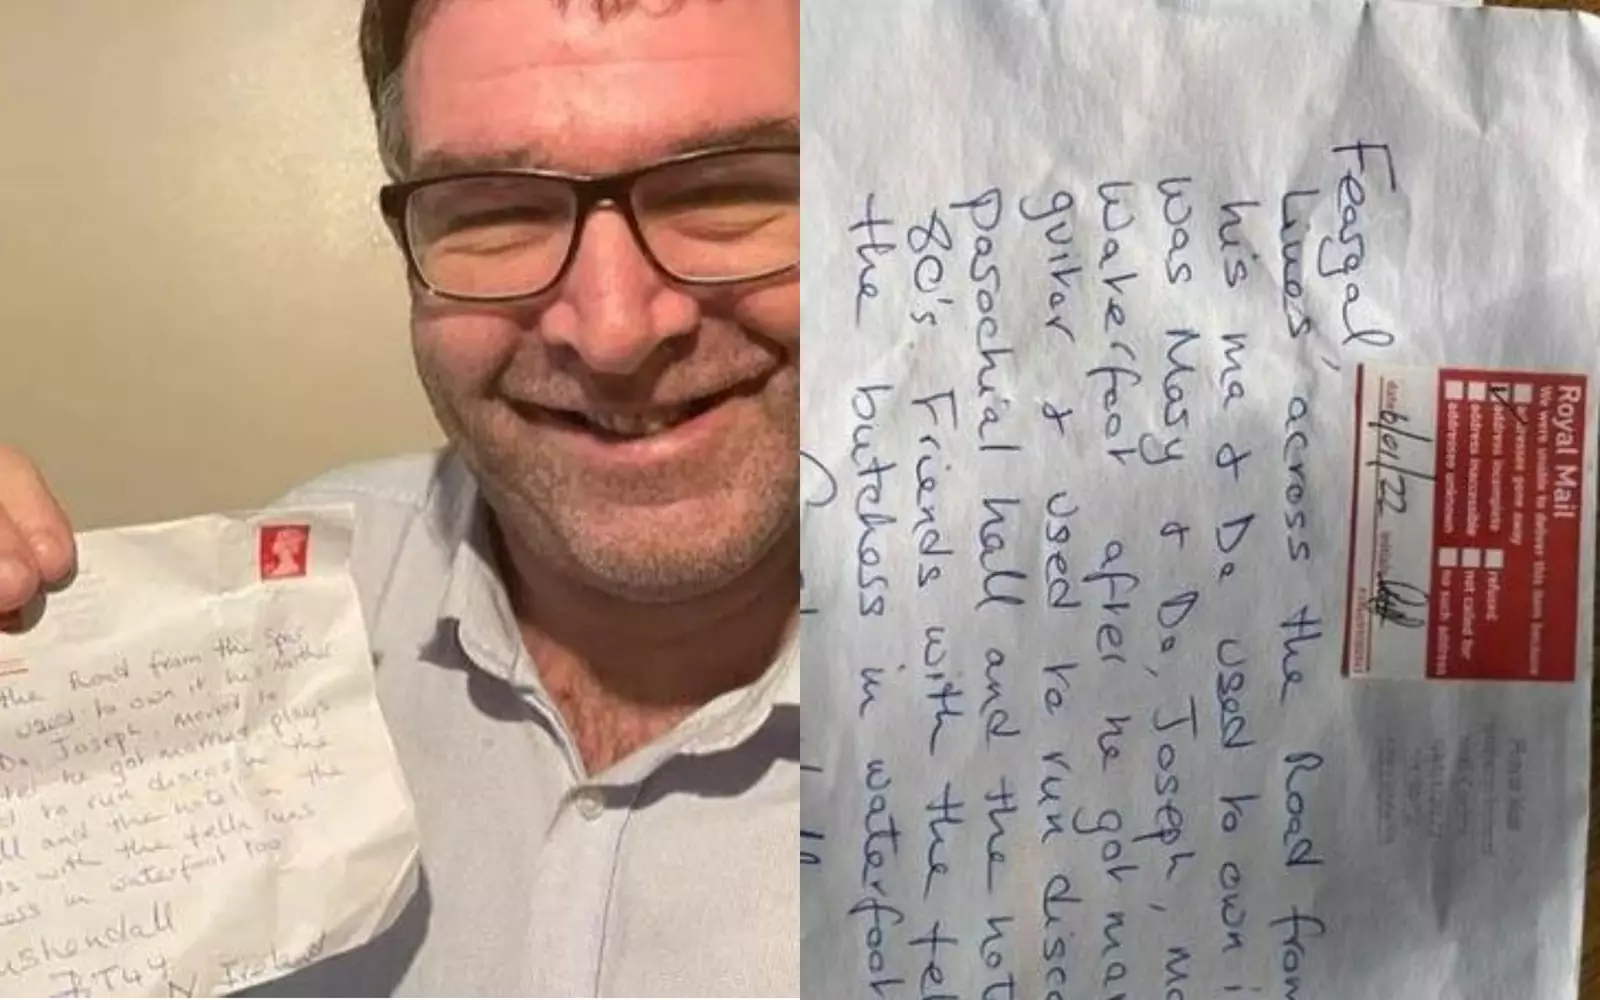 the Road from the Spar
used to own it his mother
Da, Joseph, moved to
he got married plays
to run discos in the
ll and the hotel in the
ds with the fella runs
ess in waterfoot too
ushendall
BT44 N Ireland
Feargal,
Lives across the Road from
his ma & Da used to own i
was Mary & Da, Joseph, mo
Waterfoot after he got mar
guitar & used to run disco
parochial hall and the hot
80's. Friends with the fel
the butchers in waterfoot
Royal Mail
We were unable to deliver this item because
addressee gone away
address incomplete
address inaccessible
addressee unknown
refused
not called for
no such address
date 6/01/22 initials